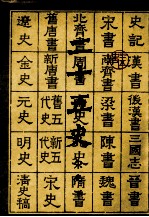 二十五史
史記 漢書 後漢書 三國志 晉書
宋書 南齊書 梁書 陳書 魏書
北齊書 周書 史 史 隋書
舊唐書 新唐書 舊五代史 新五代史 宋史
遼史 金史 元史 明史 清史稿